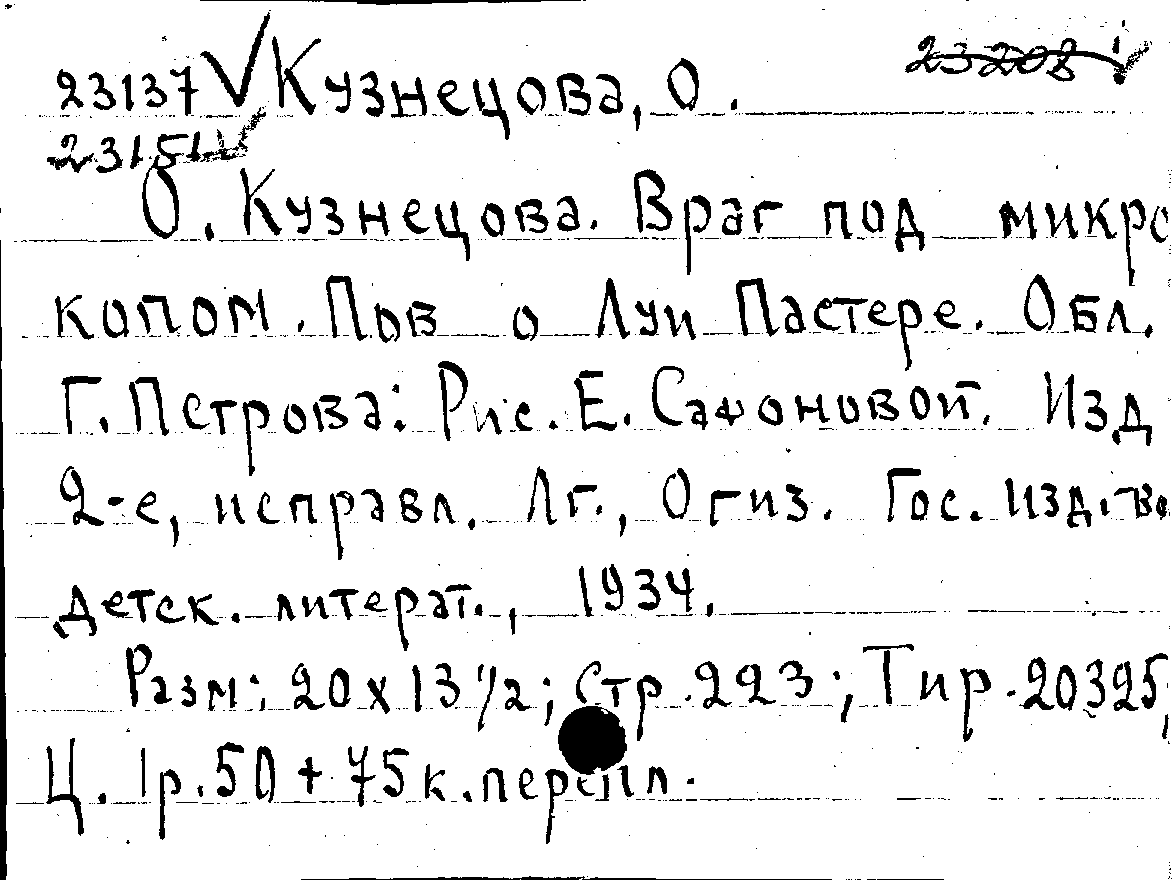 23137 Кузнецова, О.
23208
23151
О. Кузнецова. Враг под микро
копом. Пов о Луи Пастере. Обл.
Г. Петрова: Рис. Е. Сафоновой. Изд
2-е, исправл. Лг., Огиз. Гос. изд-во
детск. литерат., 1934.
Разм: 20 x 13 1/2; Стр. 223; Тир. 20325,
Ц. 1р.50 + 75 к. перепл.